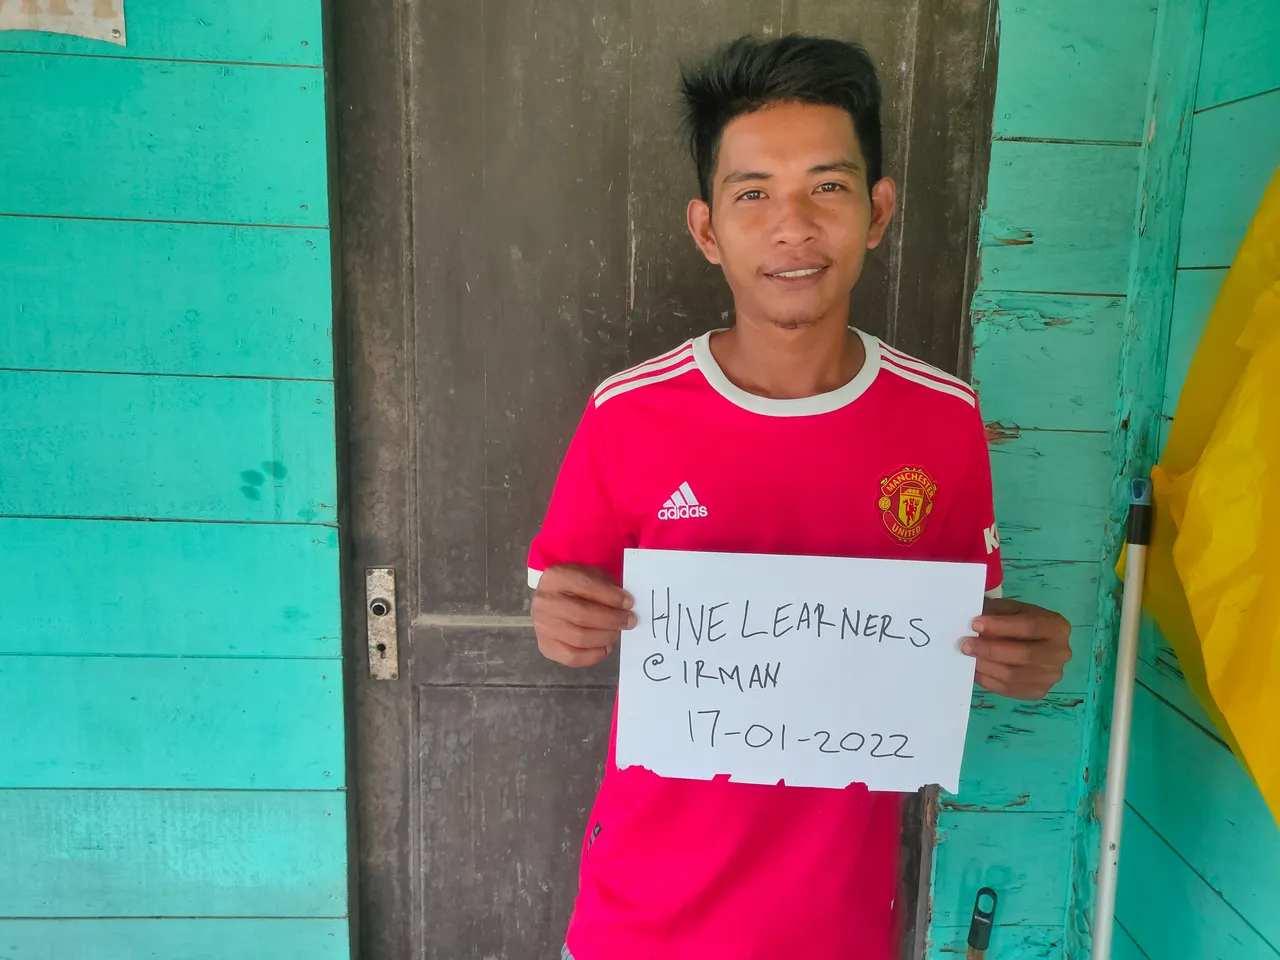 adidas
MANCHESTER
UNITED
HIVE LEARNERS
@IRMAN
17-01-2022